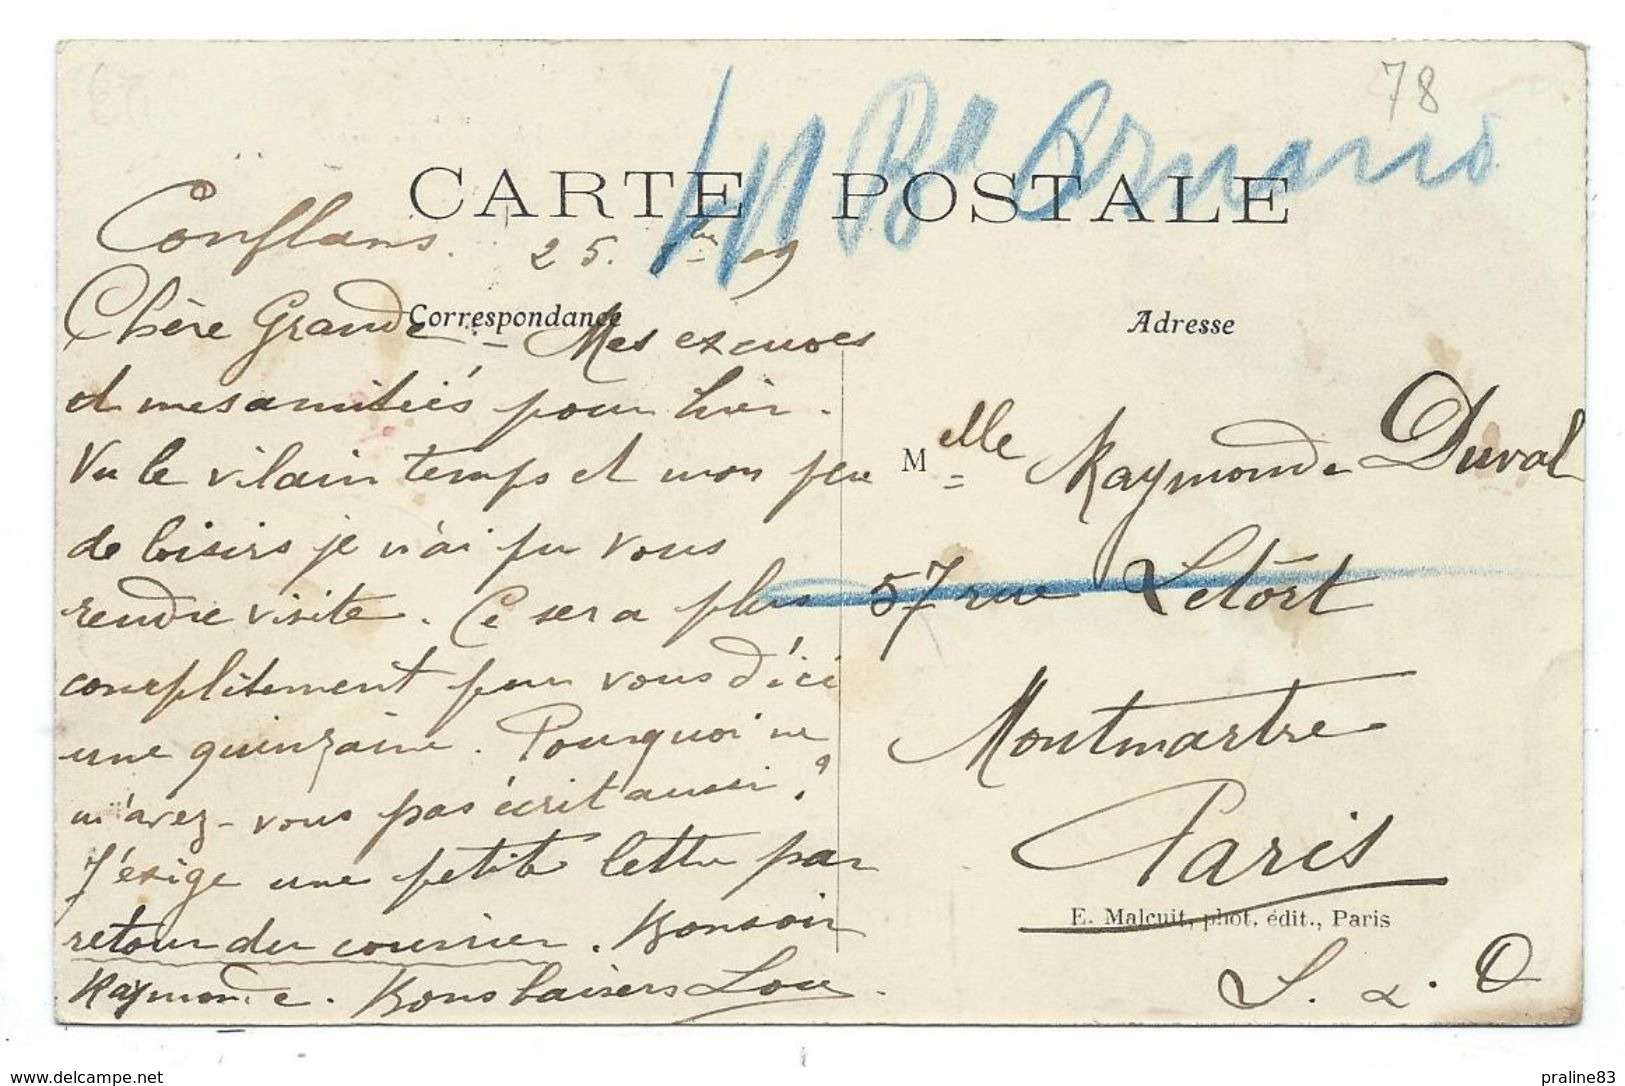 78
CARTE POSTALE
Conflans. 25. 8bre 09
Correspondance
Chère Grande - Mes excuses
et mes amitiés pour hier.
Vu le vilain temps et mon peu
de loisirs je n'ai pu vous
rendre visite. Ce sera plus
complètement pour vous d'ici
une quinzaine. Pourquoi ne
m'avez-vous pas écrit aussi?
J'exige une petite lettre par
retour du courrier. Bonsoir
Raymonde. Bons baisers Lou.
Adresse
Melle Raymonde Duval
57 rue Letort
Montmartre
Paris
E. Malcuit, phot. édit., Paris
S. & O
www.delcampe.net
praline83